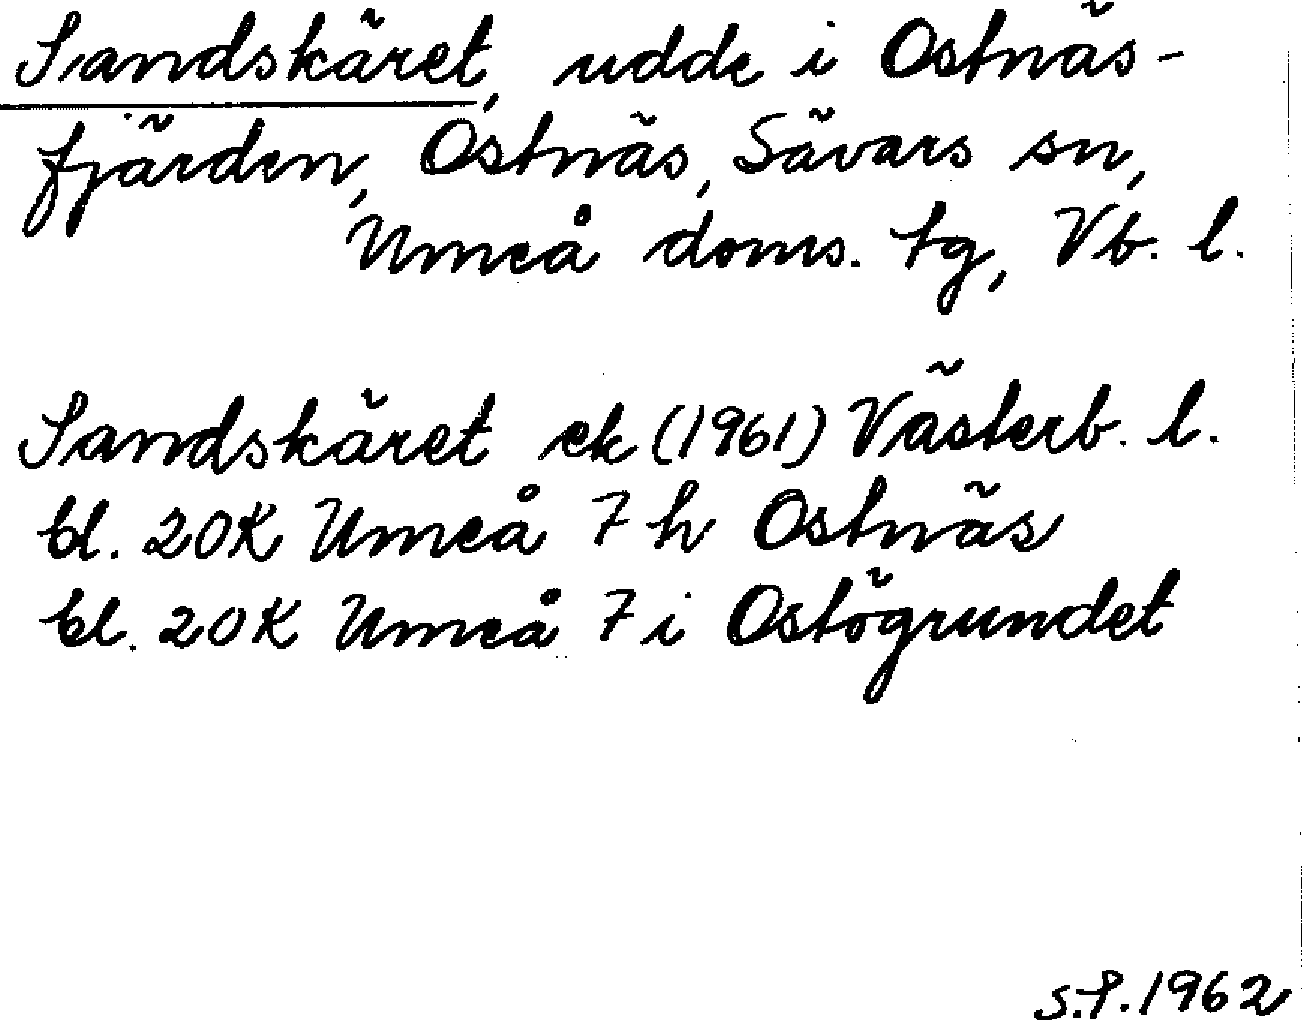 Sandskäret, udde i Ostnäs-
fjärden, Ostnäs, Sävars sn,
Umeå doms. tg, Vb. l.
Sandskäret ek (1961) Västerb. l.
bl. 20K Umeå 7 h Ostnäs
bl. 20K Umeå 7 i Ostögrundet
S.P. 1962